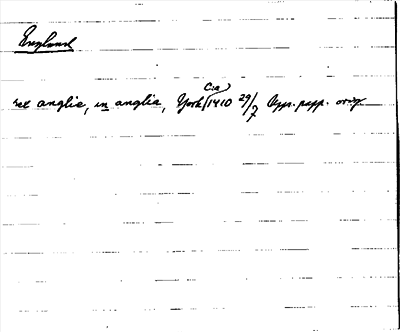 England
rex anglie, in anglia, York/(Cia) 1410 29/7 App. papp. orig